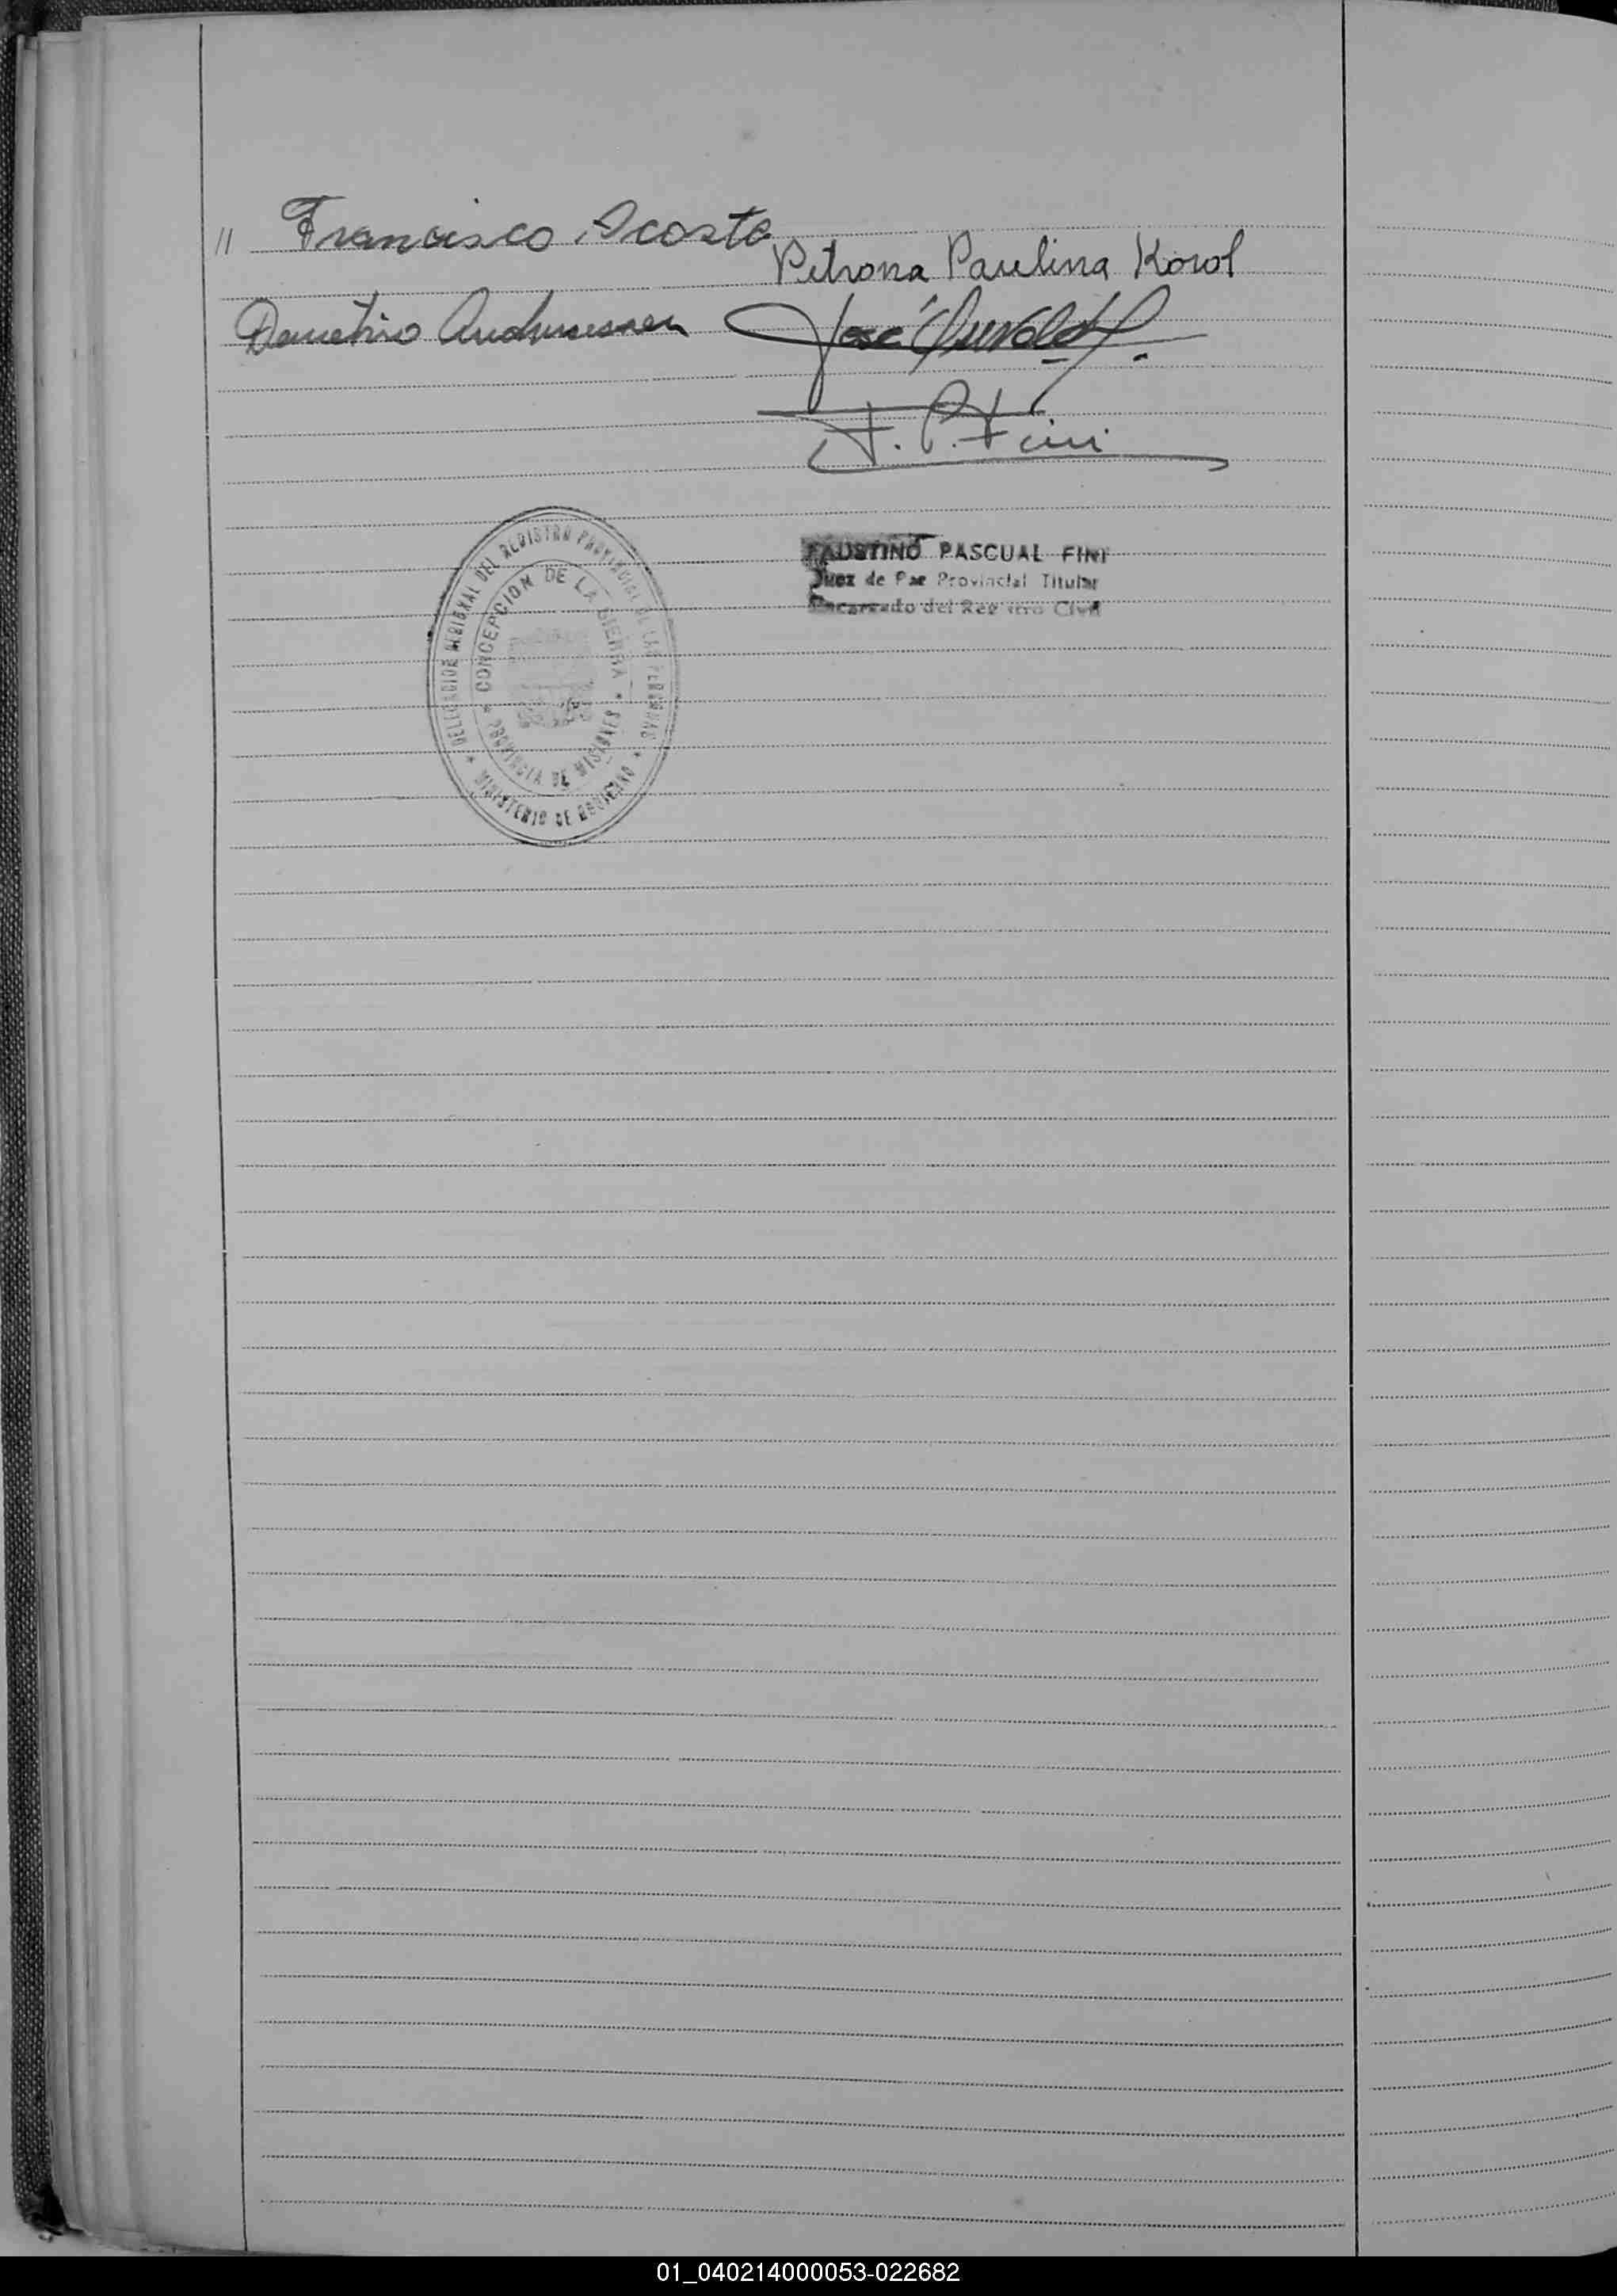 // Francisco Acosta
Petrona Paulina Korol
Demetrio
José
F. P. Fini
DELEGACION REGIONAL DEL REGISTRO PROVINCIAL DE LAS PERSONAS
* CONCEPCION DE LA SIERRA *
PROVINCIA DE MISIONES
* MINISTERIO DE GOBIERNO *
FAUSTINO PASCUAL FINI
Juez de Paz Provincial Titular
Encargado del Registro Civil
01_040214000053-022682